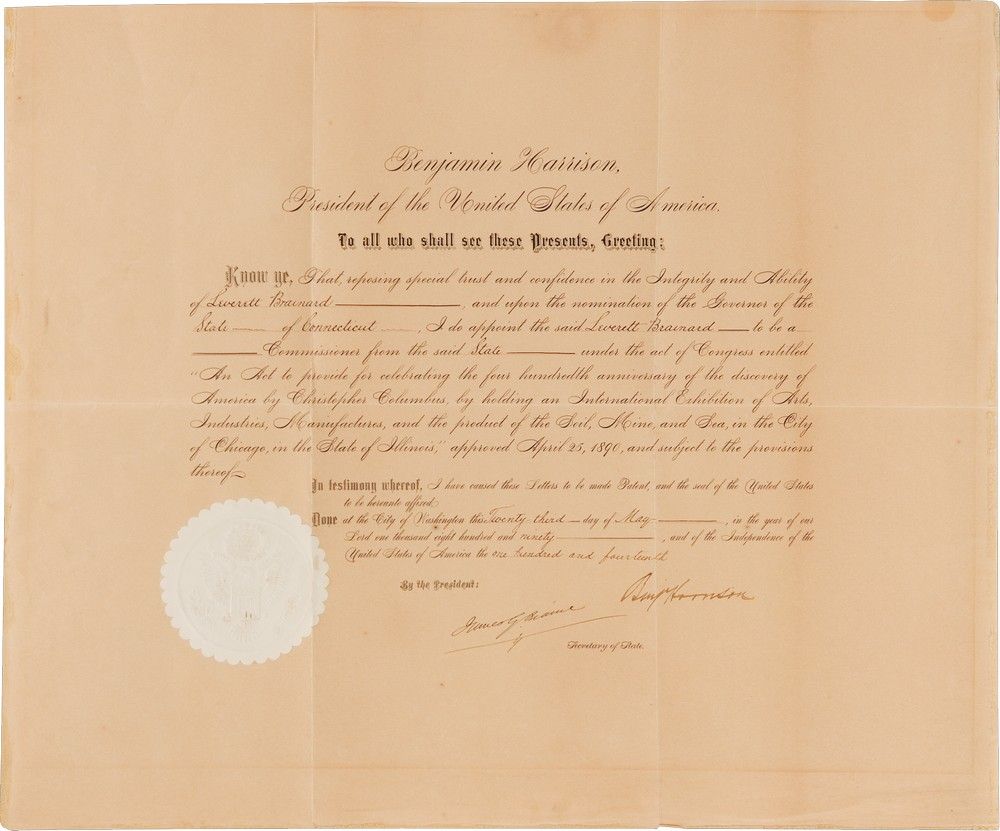 Benjamin Harrison,
President of the United States of America.
To all who shall see these Presents, Greeting:
Know ye, That, reposing special trust and confidence in the Integrity and Ability
of Leverett Brainard, and upon the nomination of the Governor of the
State of Connecticut, I do appoint the said Leverett Brainard to be a
Commissioner from the said State under the act of Congress entitled
"An Act to provide for celebrating the four hundredth anniversary of the discovery of
America by Christopher Columbus, by holding an International Exhibition of Arts,
Industries, Manufactures, and the product of the Soil, Mine, and Sea, in the City
of Chicago, in the State of Illinois," approved April 25, 1890, and subject to the provisions
thereof.
In testimony whereof, I have caused these Letters to be made Patent, and the seal of the United States
to be hereunto affixed.
Done at the City of Washington this Twenty-third day of May, in the year of our
Lord one thousand eight hundred and ninety, and of the Independence of the
United States of America the one hundred and fourteenth
By the President:
Benj Harrison
James G. Blaine
Secretary of State.